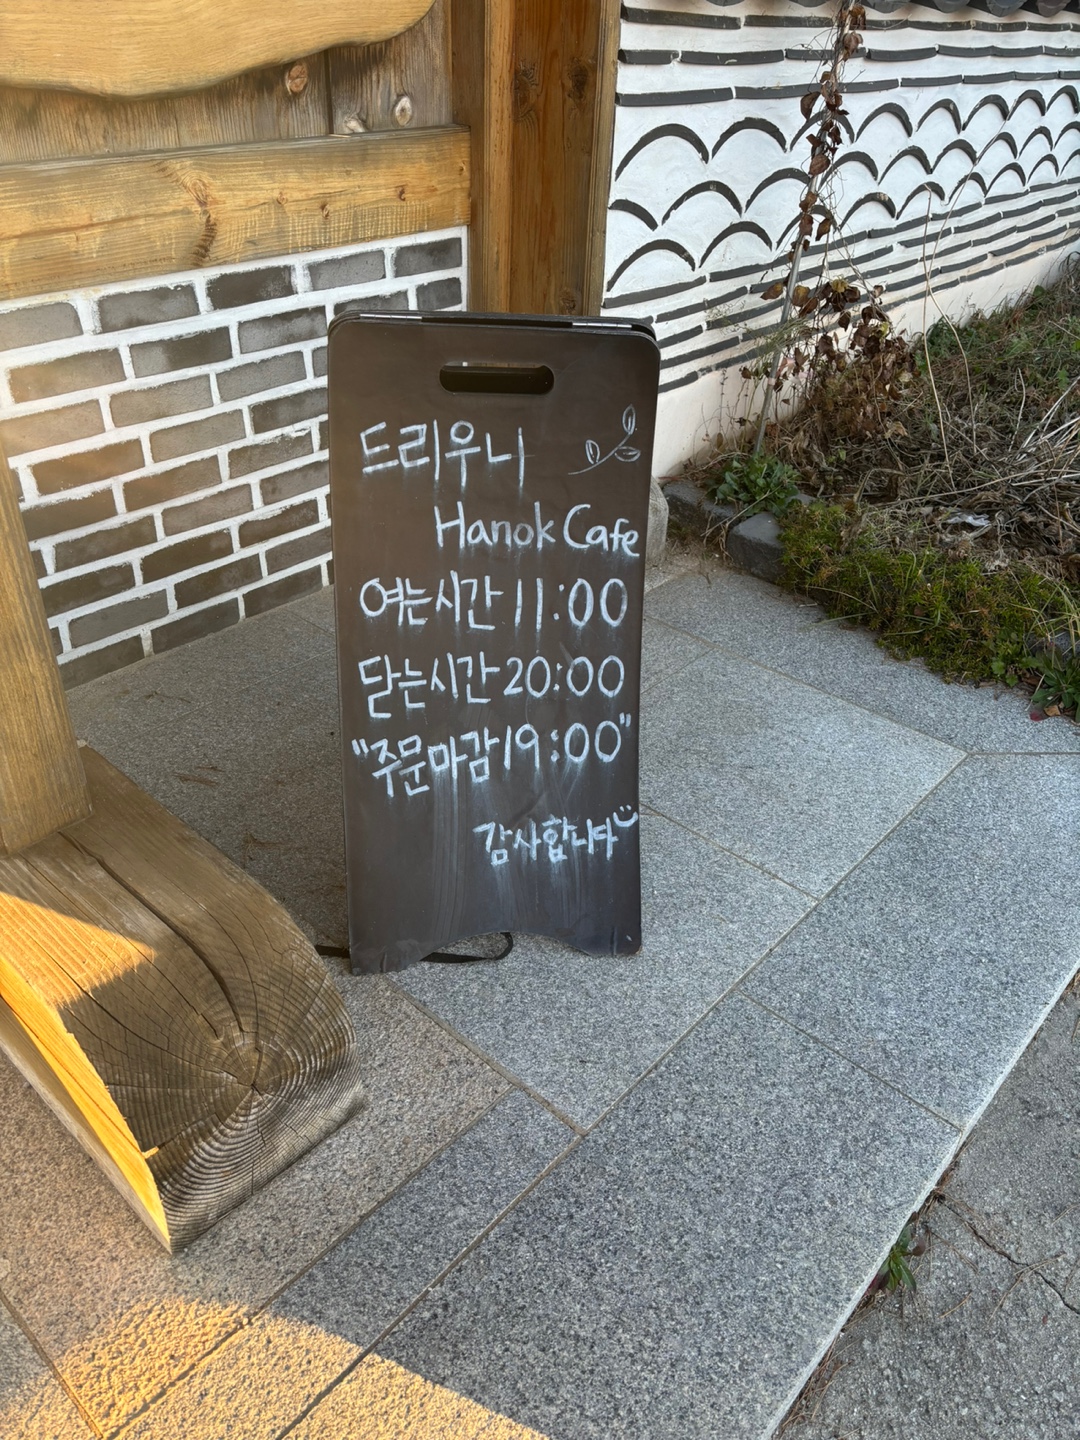 드리우니
Hanok Cafe
여는시간 11:00
닫는시간 20:00
"주문마감 19:00"
감사합니다